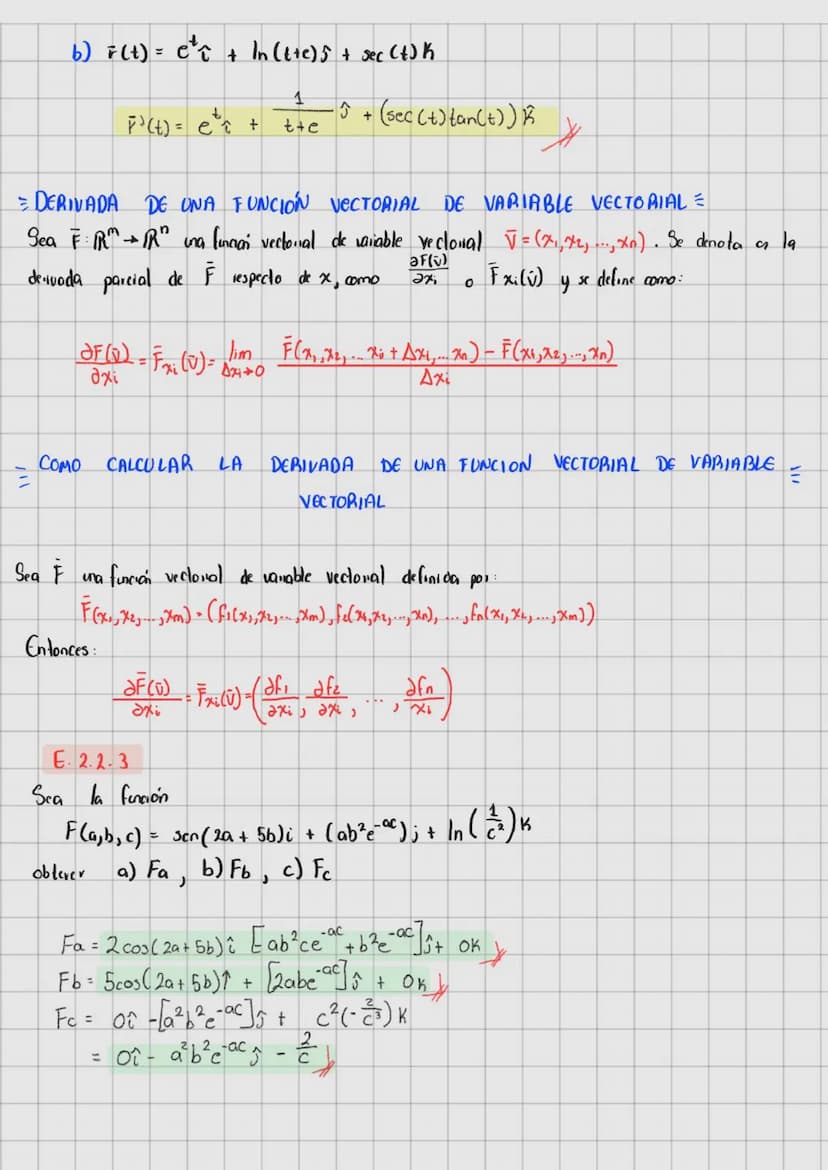 b) r̄(t) = eᵗî + ln(t+e)ĵ + sec(t)k
r̄'(t) = eᵗî + 1/(t+e) ĵ + (sec(t)tan(t))k̂
= DERIVADA DE UNA FUNCIÓN VECTORIAL DE VARIABLE VECTORIAL =
Sea F̄: ℝᵐ → ℝⁿ una función vectorial de variable vectorial v̄ = (x₁, x₂, ..., xn). Se denota a la
derivada parcial de F̄ respecto de x, como ∂F(v̄)/∂xᵢ o F̄xᵢ(v̄) y se define como:
∂F(v̄)/∂xᵢ = F̄xᵢ(v̄) = lim Δxᵢ→0 [F̄(x₁, x₂, ... xᵢ + Δxᵢ, ... xn) - F̄(x₁, x₂, ..., xn)]/Δxᵢ
= COMO CALCULAR LA DERIVADA DE UNA FUNCION VECTORIAL DE VARIABLE =
VECTORIAL
Sea F̄ una función vectorial de variable vectorial definida por:
F̄(x₁, x₂, ..., xm) = (f₁(x₁, x₂, ..., xm), f₂(x₁, x₂, ..., xn), ..., fn(x₁, x₂, ..., xm))
Entonces:
∂F̄(v̄)/∂xᵢ = F̄xᵢ(v̄) = (∂f₁/∂xᵢ, ∂f₂/∂xᵢ, ..., ∂fn/xᵢ)
E. 2.2.3
Sea la función
F(a,b,c) = sen(2a + 5b)i + (ab²e⁻ᵃᶜ)j + ln(1/c²)k
obtener a) Fa, b) Fb, c) Fc
Fa = 2cos(2a + 5b)î [ab²ce⁻ᵃᶜ + b²e⁻ᵃᶜ]ĵ + 0k
Fb = 5cos(2a + 5b)î + [2abe⁻ᵃᶜ]ĵ + 0k
Fc = 0î - [a²b²e⁻ᵃᶜ]ĵ + c²(-2/c³)k
= 0î - a²b²e⁻ᵃᶜĵ - 2/c